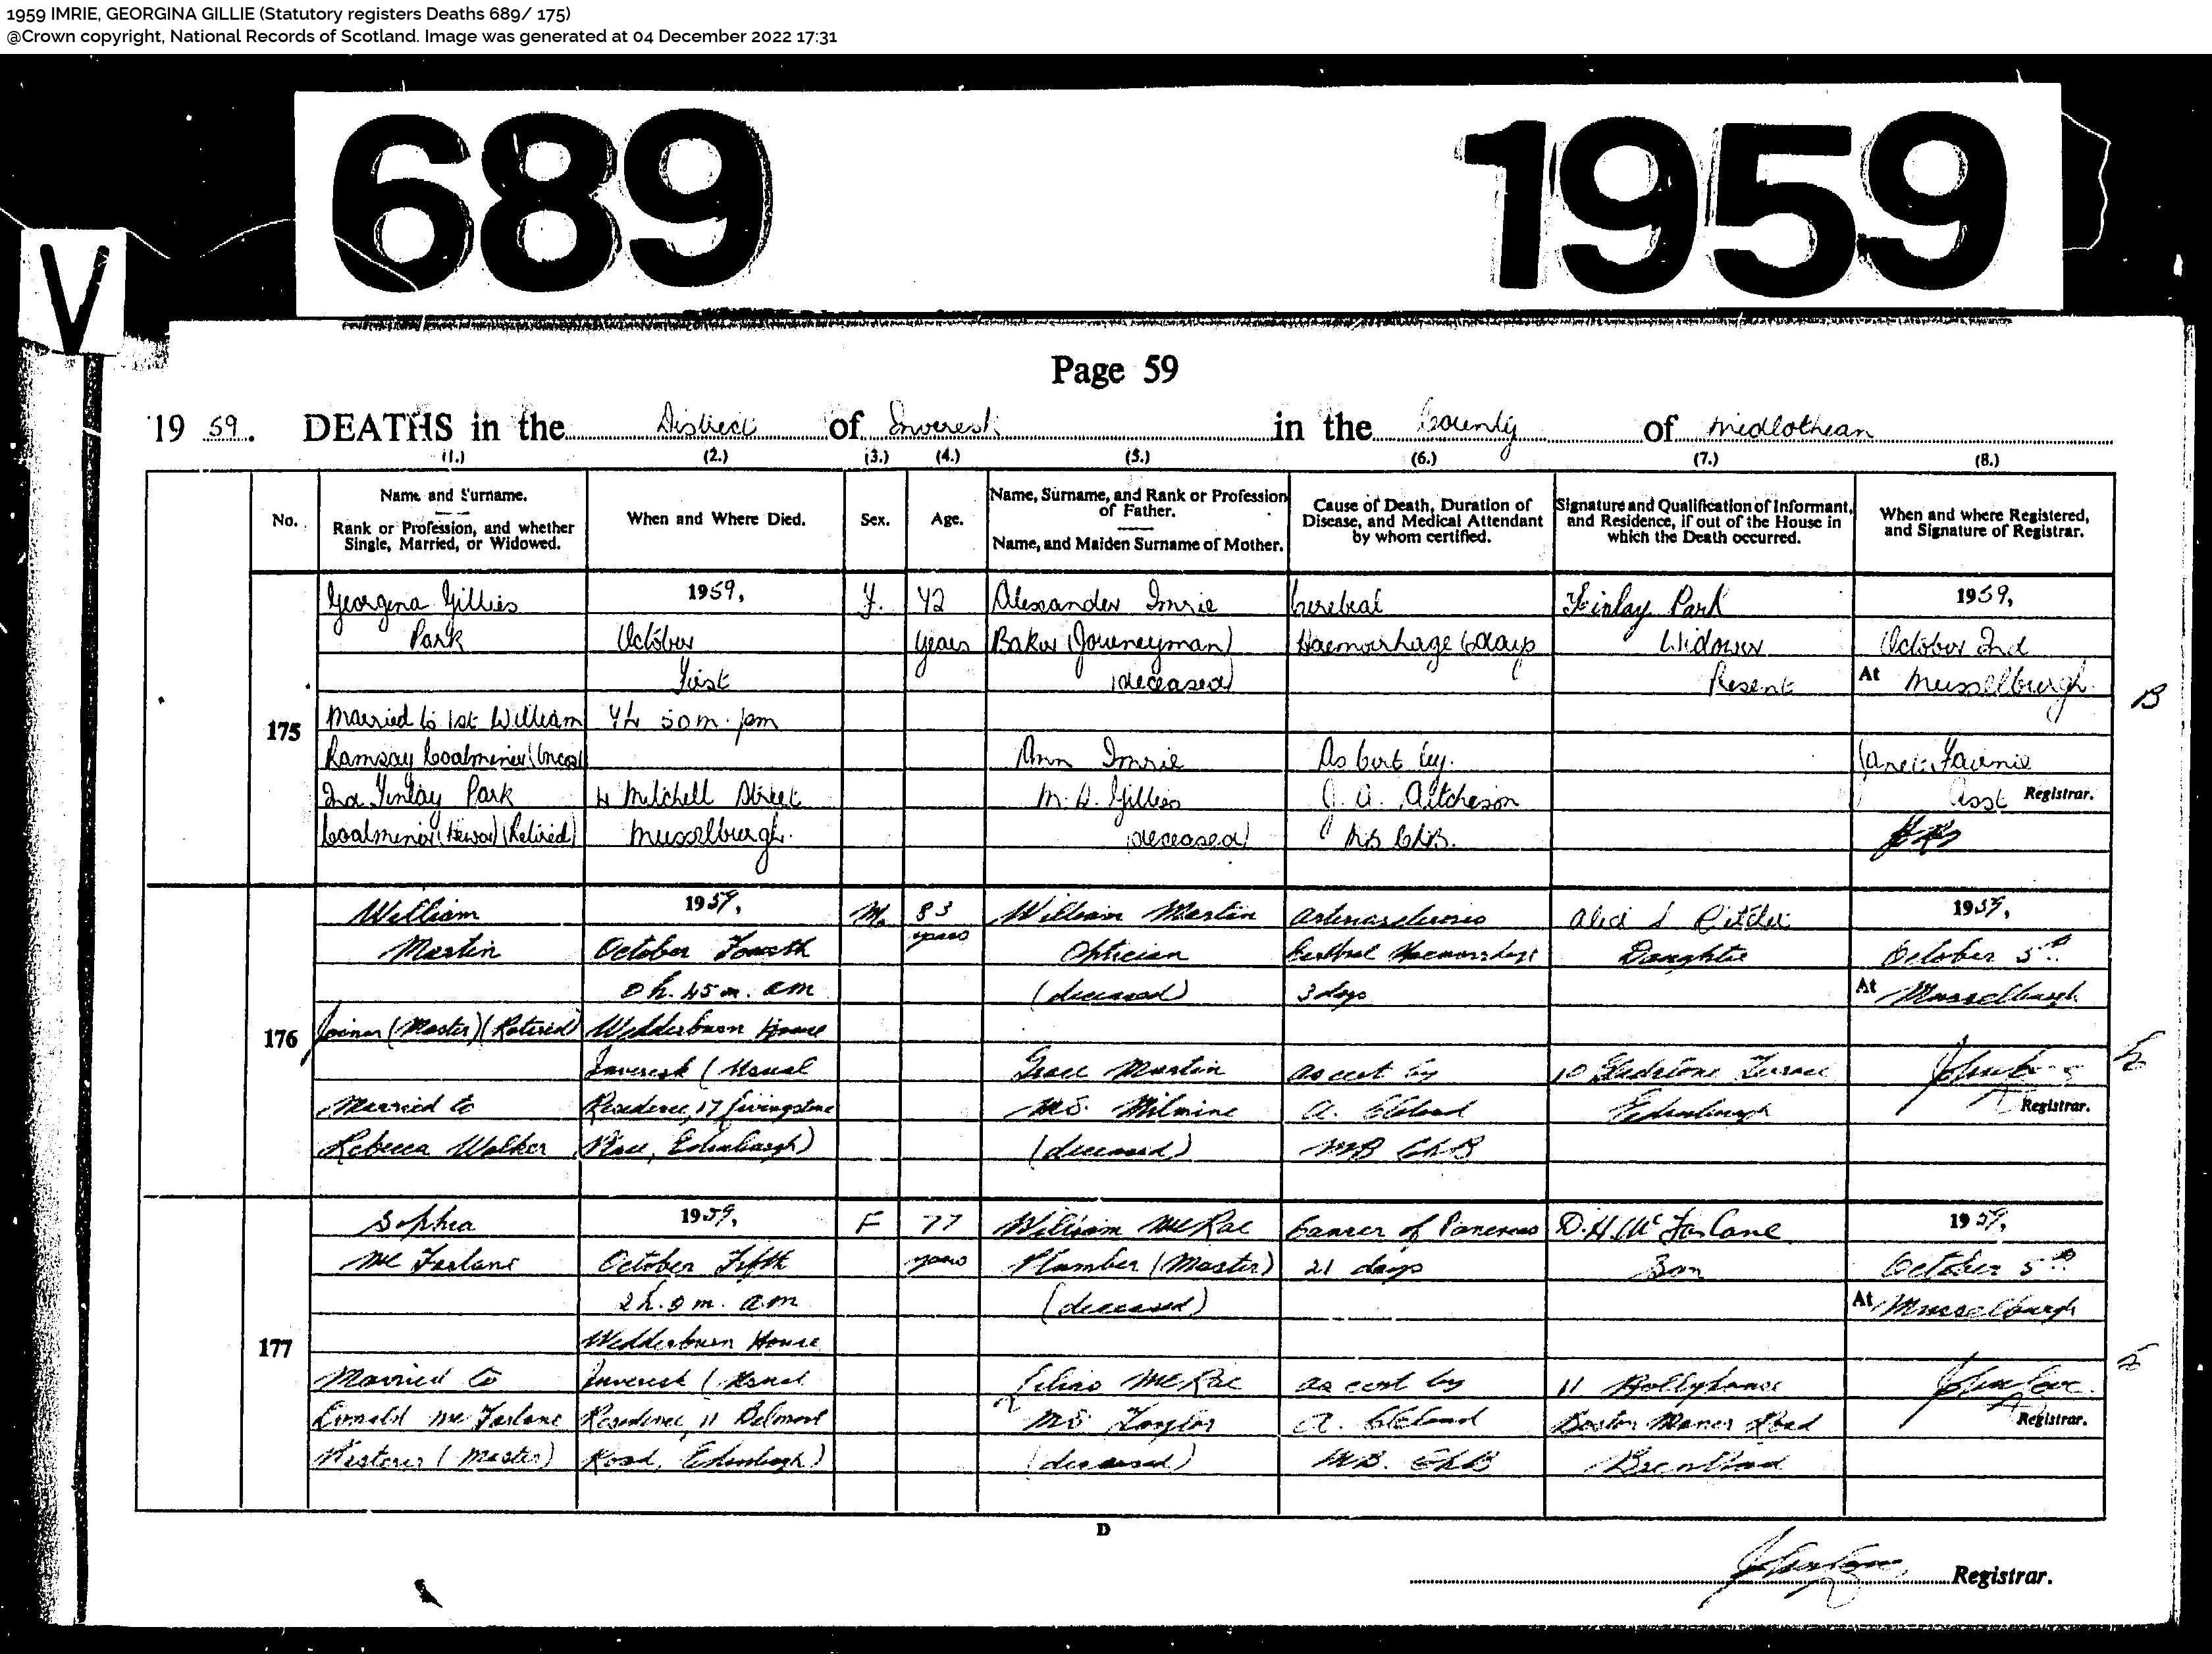 1959 IMRIE, GEORGINA GILLIE (Statutory registers Deaths 689/ 175)
@Crown copyright, National Records of Scotland. Image was generated at 04 December 2022 17:31
689
1959
V
Page 59
19 59. DEATHS in the District of Inveresk in the County of Midlothian
(1.) (2.) (3.) (4.) (5.) (6.) (7.) (8.)
No.
Name and Surname.
Rank or Profession, and whether
Single, Married, or Widowed.
When and Where Died.
Sex.
Age.
Name, Surname, and Rank or Profession
of Father.
Name, and Maiden Surname of Mother.
Cause of Death, Duration of
Disease, and Medical Attendant
by whom certified.
Signature and Qualification of Informant,
and Residence, if out of the House in
which the Death occurred.
When and where Registered,
and Signature of Registrar.
175
Georgina Gillies
Park
Married to 1st William
Ramsay Coalminer
2nd Finlay Park
Coalminer (Hewer) (Retired)
1959,
October
First
50m. pm
4 Mitchell Street
Musselburgh.
F.
years
Alexander Imrie
Baker (Journeyman)
(deceased)
Ann Imrie
M.S. Gillies
(deceased)
Cerebral
Haemorrhage 6 days
As cert by.
J. A. Aitcheson
MB ChB.
Finlay Park
Widower
Present
1959,
October 2nd
At Musselburgh
Janet
Asst Registrar.
B
176
William
Martin
Joiner (Master) (Retired)
Married to
Rebecca Walker
1959,
October Fourth
0 h. 45 m. am
Wedderburn House
Inveresk (Usual
Residence, 17 Livingstone
Place, Edinburgh)
M.
83
years
William Martin
Optician
(deceased)
Grace Martin
M.S. Milmine
(deceased)
Arteriosclerosis
Cerebral Haemorrhage
3 days
as cert by
A. Cleland
MB ChB
Daughter
10 Gladstone Terrace
Edinburgh
1959,
October 5th
At Musselburgh
Registrar.
177
Sophia
McFarlane
Married to
Donald McFarlane
(Master)
1959,
October Fifth
2 h. 0 m. am
Wedderburn House
Inveresk (Usual
Residence, 11 Belmont
Road, Edinburgh)
F
77
years
William McRae
Plumber (Master)
(deceased)
Lilias McRae
M.S. Taylor
(deceased)
Cancer of Pancreas
21 days
as cert by
A. Cleland
MB. ChB
D. H. McFarlane
Son
11
Boston Manor Road
Brentford
1959,
October 5th
At Musselburgh
Registrar.
D
Registrar.